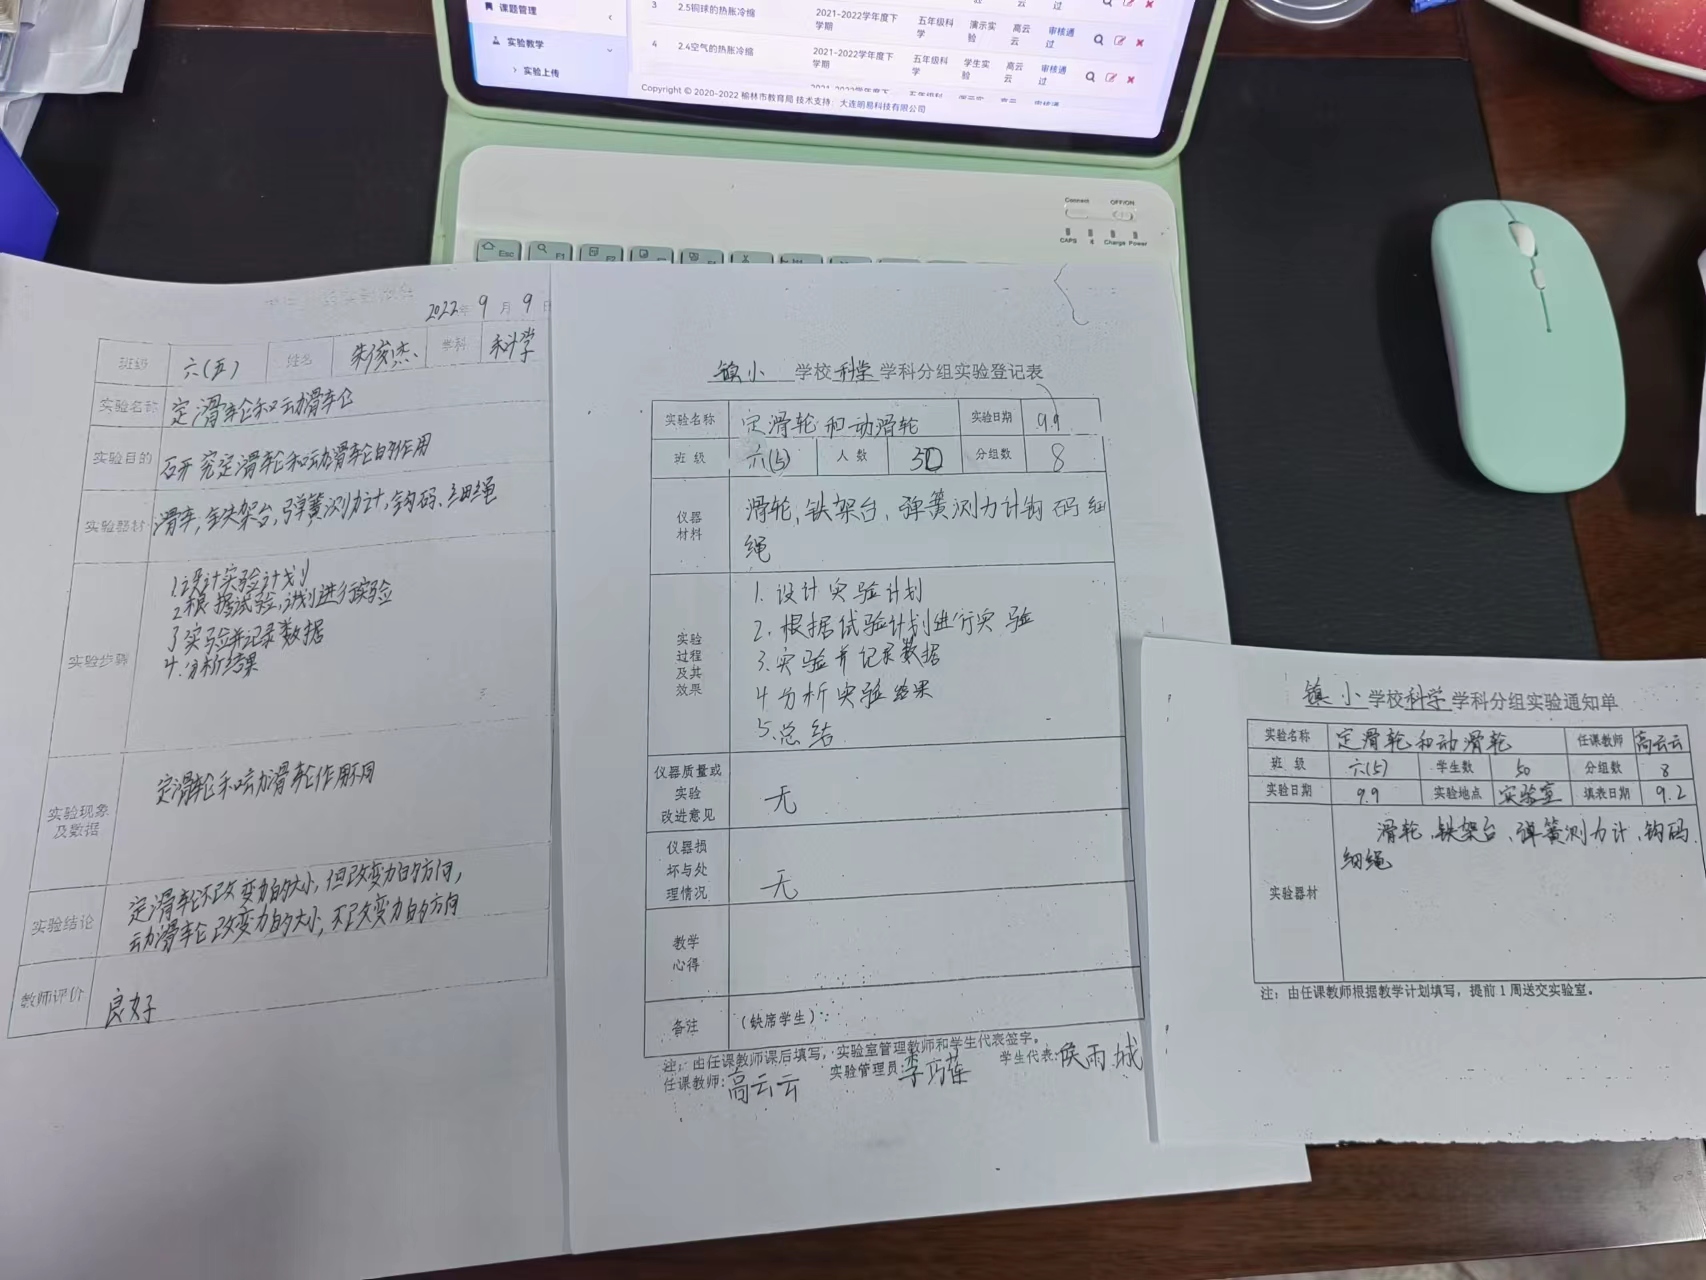 课题管理
实验教学
实验上传
3 2.5铜球的热胀冷缩 2021-2022学年度下学期 五年级科学 演示实验 高云云 审核通过
4 2.4空气的热胀冷缩 2021-2022学年度下学期 五年级科学 学生实验 高云云 审核通过
Copyright © 2020-2022 榆林市教育局 技术支持：大连明易科技有限公司
Connect OFF/ON
CAPS Charge Power
Esc F1 F2
2022年 9 月 9 日
班级 六(五) 姓名 朱俊杰 学科 科学
实验名称 定滑轮和动滑轮
实验目的 研究定滑轮和动滑轮的作用
实验器材 滑车,金铁架台,弹簧测力计,钩码、细绳
实验步骤
1.设计实验计划
2.根据试验,计划进行实验
3 实验并记录数据
4.分析结果
实验现象及数据 定滑轮和动滑轮作用不同
实验结论 定滑轮不改变力的大小,但改变力的方向,
动滑轮改变力的大小,不改变力的方向
教师评价 良好
镇小 学校科学学科分组实验登记表
实验名称 定滑轮和动滑轮 实验日期 9.9
班 级 六(5) 人 数 50 分组数 8
仪器材料 滑轮、铁架台、弹簧测力计钩码细
绳
实验过程及其效果
1. 设计实验计划
2. 根据试验计划进行实验
3. 实验并记录数据
4 分析实验结果
5.总结
仪器质量或实验改进意见 无
仪器损坏与处理情况 无
教学心得
备注 (缺席学生):
注：由任课教师课后填写，实验室管理教师和学生代表签字。
任课教师:高云云 实验管理员:李巧莲 学生代表:侯雨城
镇小学校科学学科分组实验通知单
实验名称 定滑轮和动滑轮 任课教师 高云云
班 级 六(5) 学生数 50 分组数 8
实验日期 9.9 实验地点 实验室 填表日期 9.2
实验器材 滑轮、铁架台、弹簧测力计、钩码
细绳
注：由任课教师根据教学计划填写，提前1周送交实验室。